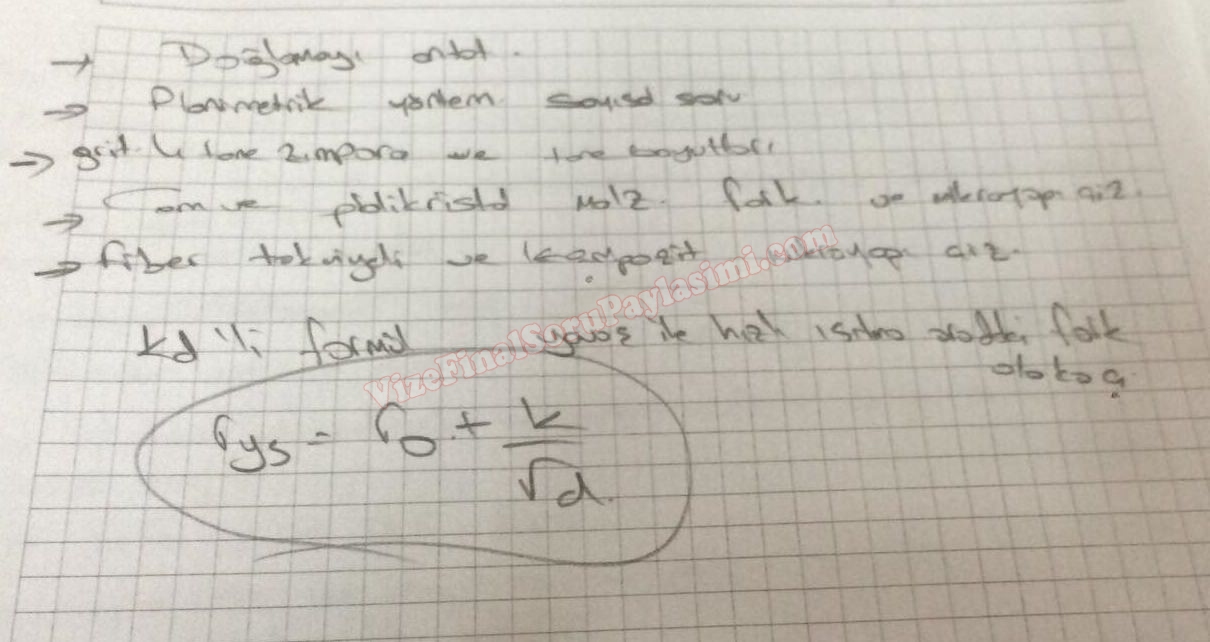 → Dağlamayı anlat.
→ Planimetrik yöntem sayısal soru
→ grit li tane zımpara ve tane boyutları
→ Cam ve polikristal malz. fark. ve mikroyapı çiz.
→ fiber takviyeli ve kompozit mikroyapı çiz.
kd 'li formül yavaş ile hızlı ısıtma aradaki fark
olakaç.
σys = σ0 + k/√d
VizeFinalSoruPaylasimi.com